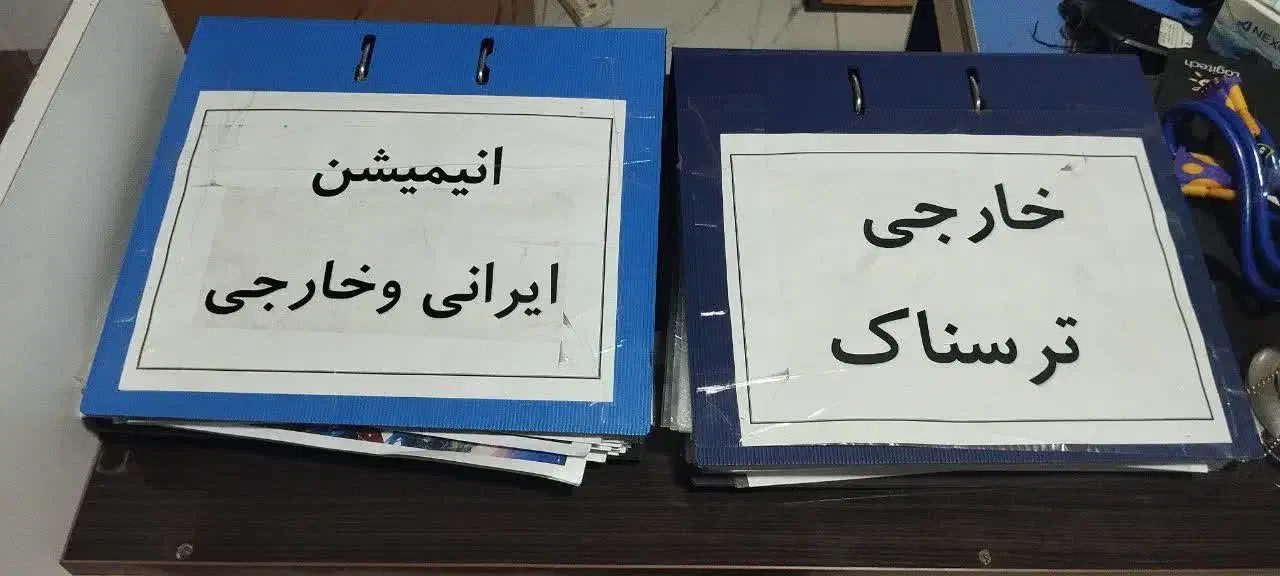 انیمیشن
ایرانی وخارجی
خارجی
ترسناک
logitech
NEXO